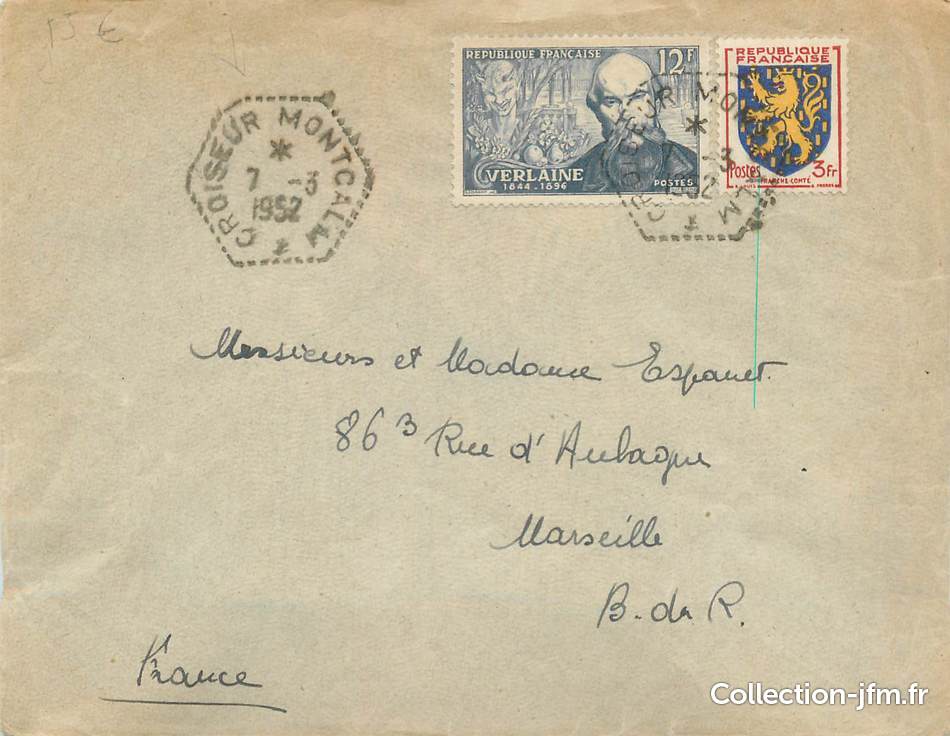 15 €
CROISEUR MONTCALM
7 -3
1952
REPUBLIQUE FRANÇAISE
12F
VERLAINE
1844-1896
POSTES
REPUBLIQUE
FRANÇAISE
Postes
3Fr
FRANCHE-COMTÉ
CROISEUR MONTCALM
Messieurs et Madame Espanet
86 3 Rue d'Aubagne
Marseille
B. du R.
France
Collection-jfm.fr